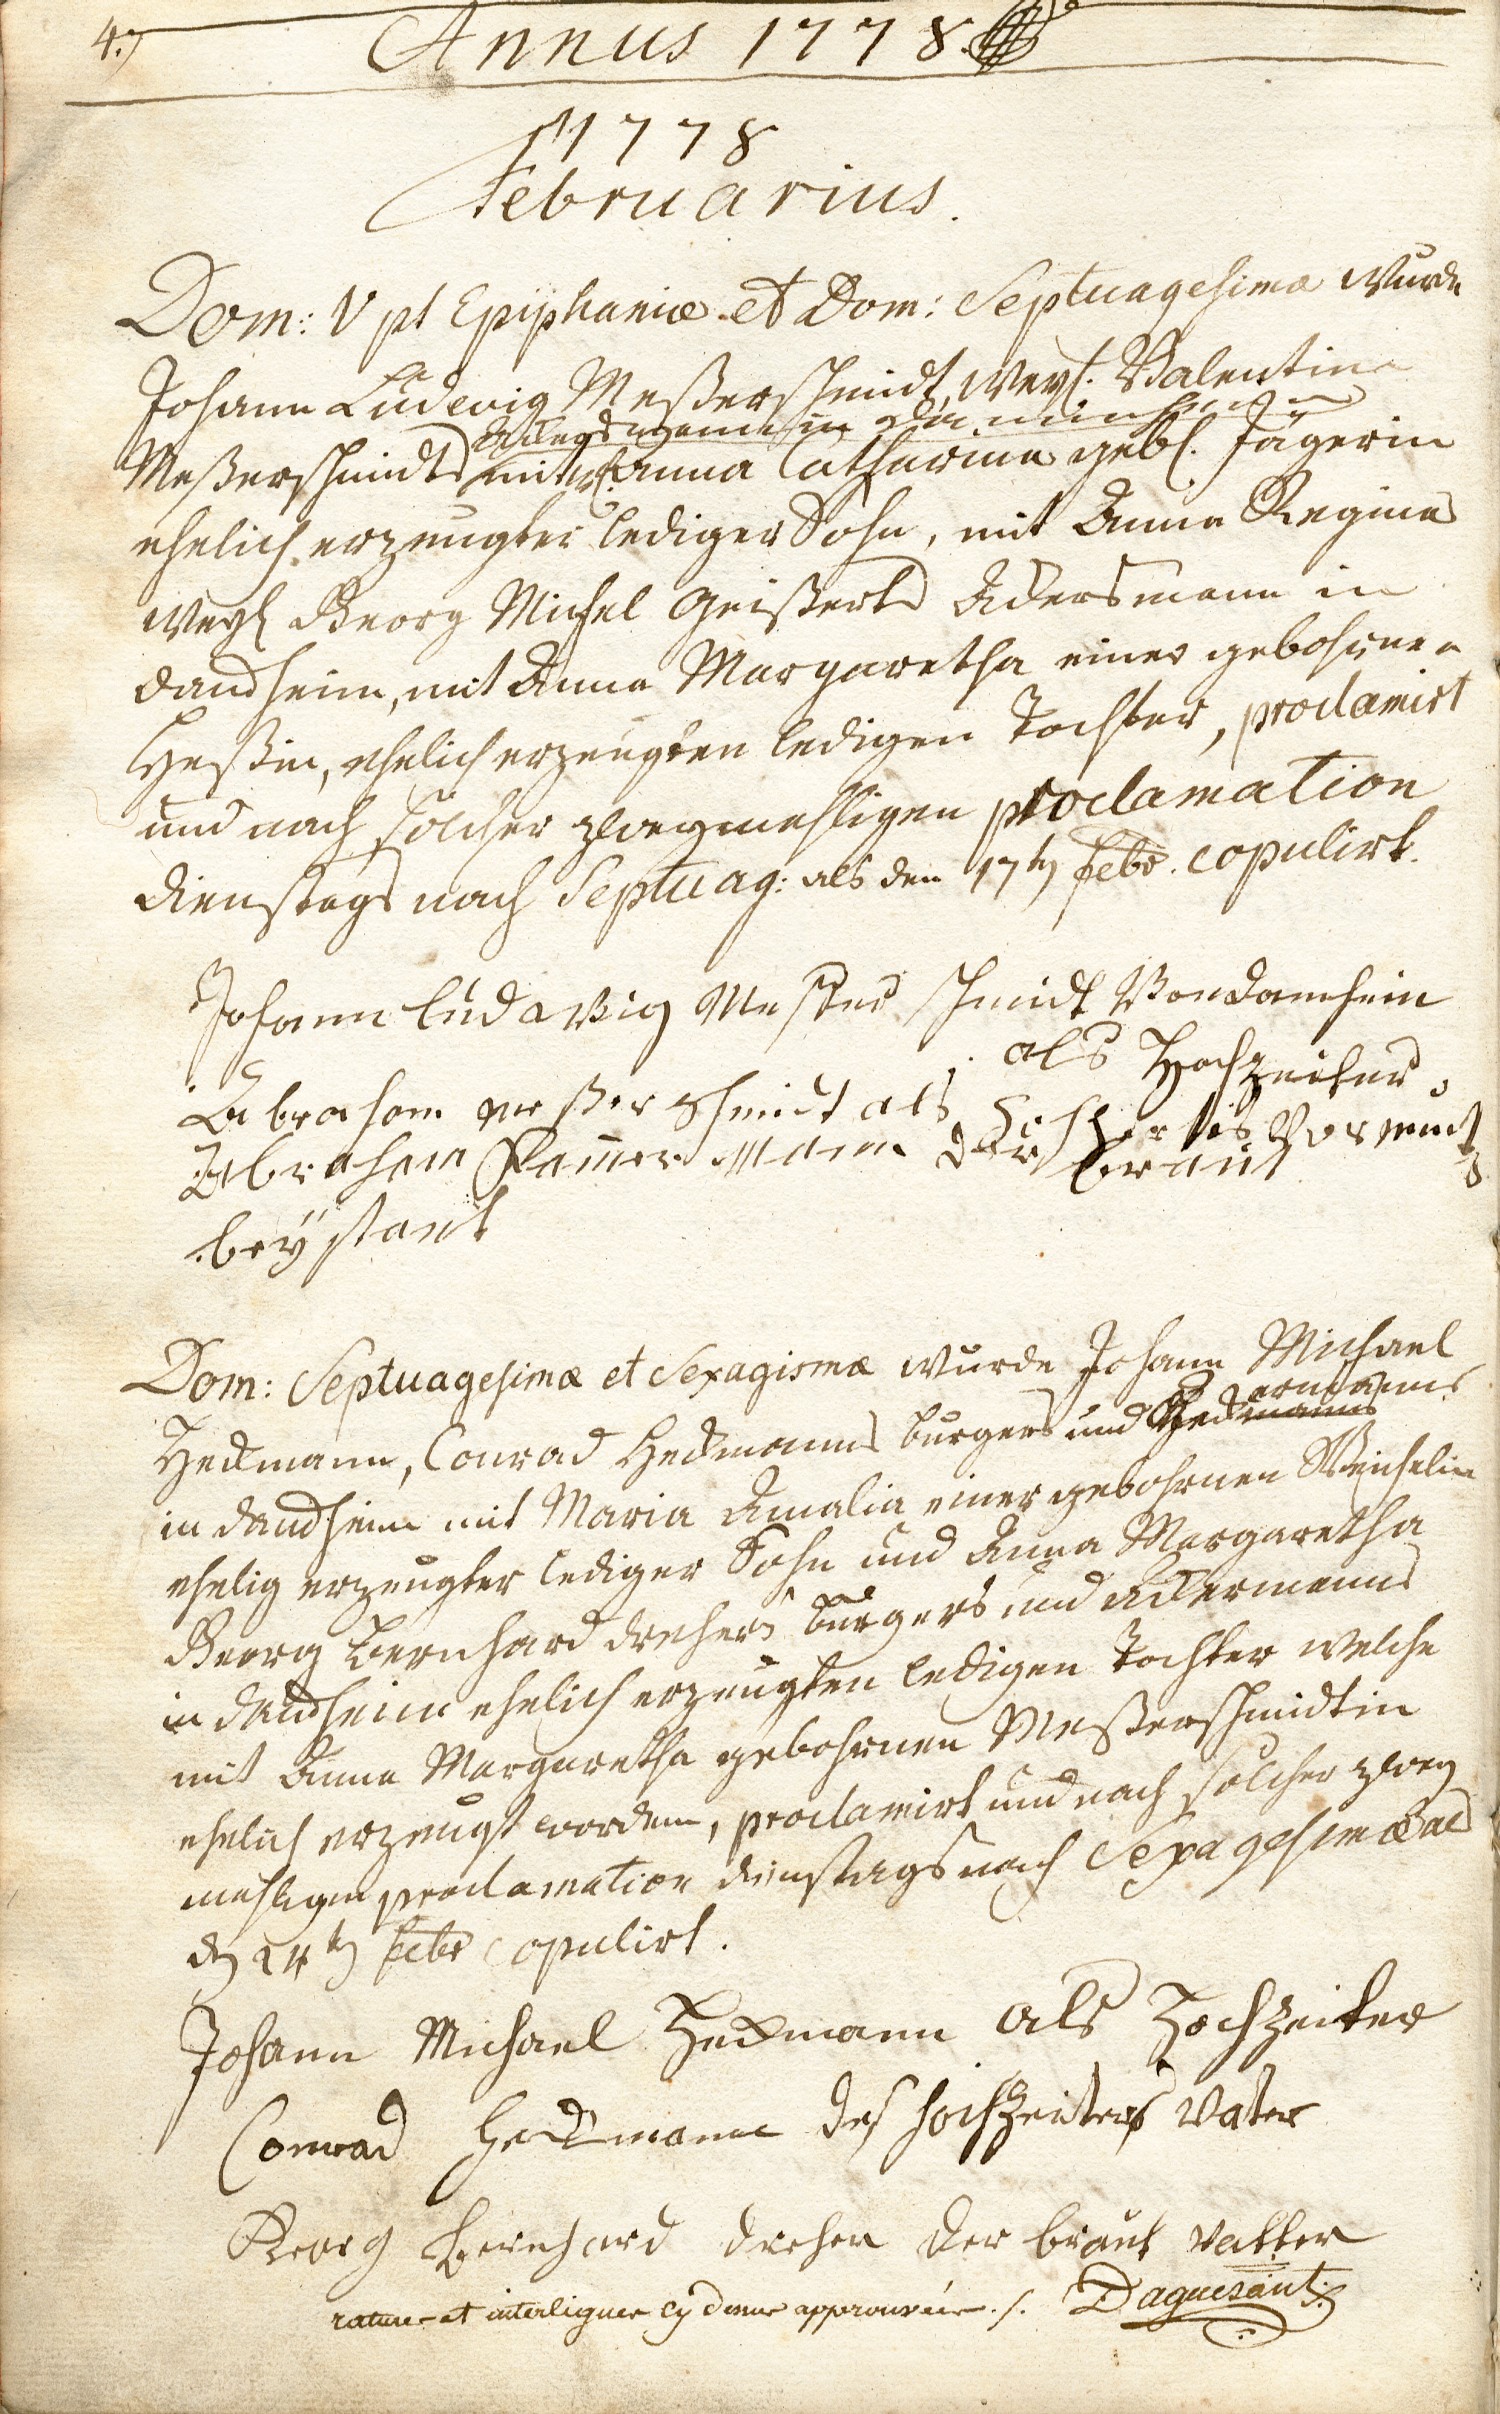 4.)
Annus 1778.
1778
Februarius.
Dom: V pt Epiphaniæ et Dom: Septuagesimæ wurde
Johann Ludewig Meßerschmidt, weyl. Valentin
Meßerschmidts mit Anna Catharina gebl. Jägerin
ehelich erzeugter lediger Sohn, mit Anna Regina
weyl Georg Michel Geißerts Ackersmann in
Dandheim, mit Anna Margaretha einer gebohrnen
Heßin, ehelich erzeugten ledigen Tochter, proclamirt
und nach solcher zweymahligen proclamation
Dienstags nach Septuag: als den 17ten febr. copulirt.
Johann Ludawig Messerschmidt Von
als Hochzeiter
Abraham meßerschmidt als
Abraham der braut
beystant
Dom: Septuagesimæ et Sexagismæ wurde Johann Michael
Heckmann, Conrad Heckmanns burgers und
in Dandheim mit Maria Amalia einer gebohrnen
ehelig erzeugter lediger Sohn und Anna Margaretha
Georg Bernhard Drehers burgers und Ackermanns
in Dandheim ehelich erzeugten ledigen Tochter welche
mit Anna Margaretha gebohrnen Meßerschmidtin
ehelich erzeugt worden, proclamirt und nach solcher zwey
mahligen proclamation Dienstags nach Sexagesimæ als
d 24ten febr copulirt.
Johann Michael Heckmann als Hochzeiter
Conrad Heckmann des hochzeiters Vater
Georg Bernhard Dreher der braut vatter
rature et interligne cy dessus approuvée ./. Daguesant